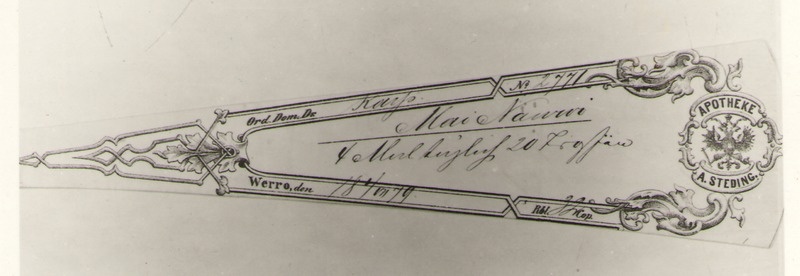 Ord. Dom. Dr. Karp № 2771
Mai Nawwi
4 Mal täglich 20 Tropfen
Werro, den 18 79
Rbl. Kop.
APOTHEKE
A. STEDING.